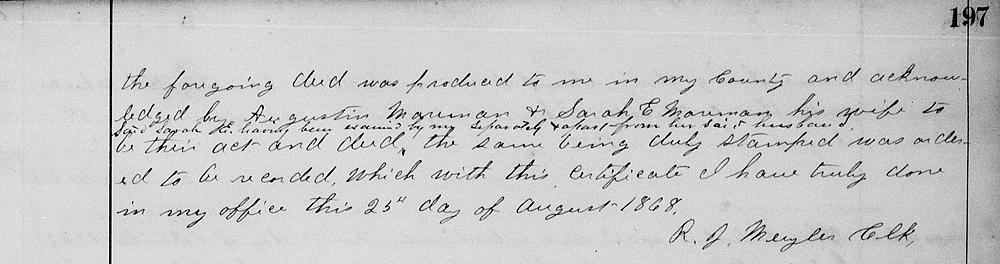 197
the foregoing deed was produced to me in my County and acknow-
ledged by Augustin Moreman & Sarah E Moreman his wife to
Said Sarah E. having been examined by me seperately & apart from her said husband
be their act and deed, the same being duly stamped was order-
ed to be recorded, which with this certificate I have truly done
in my office this 25" day of August 1868.
R. J. Clk,